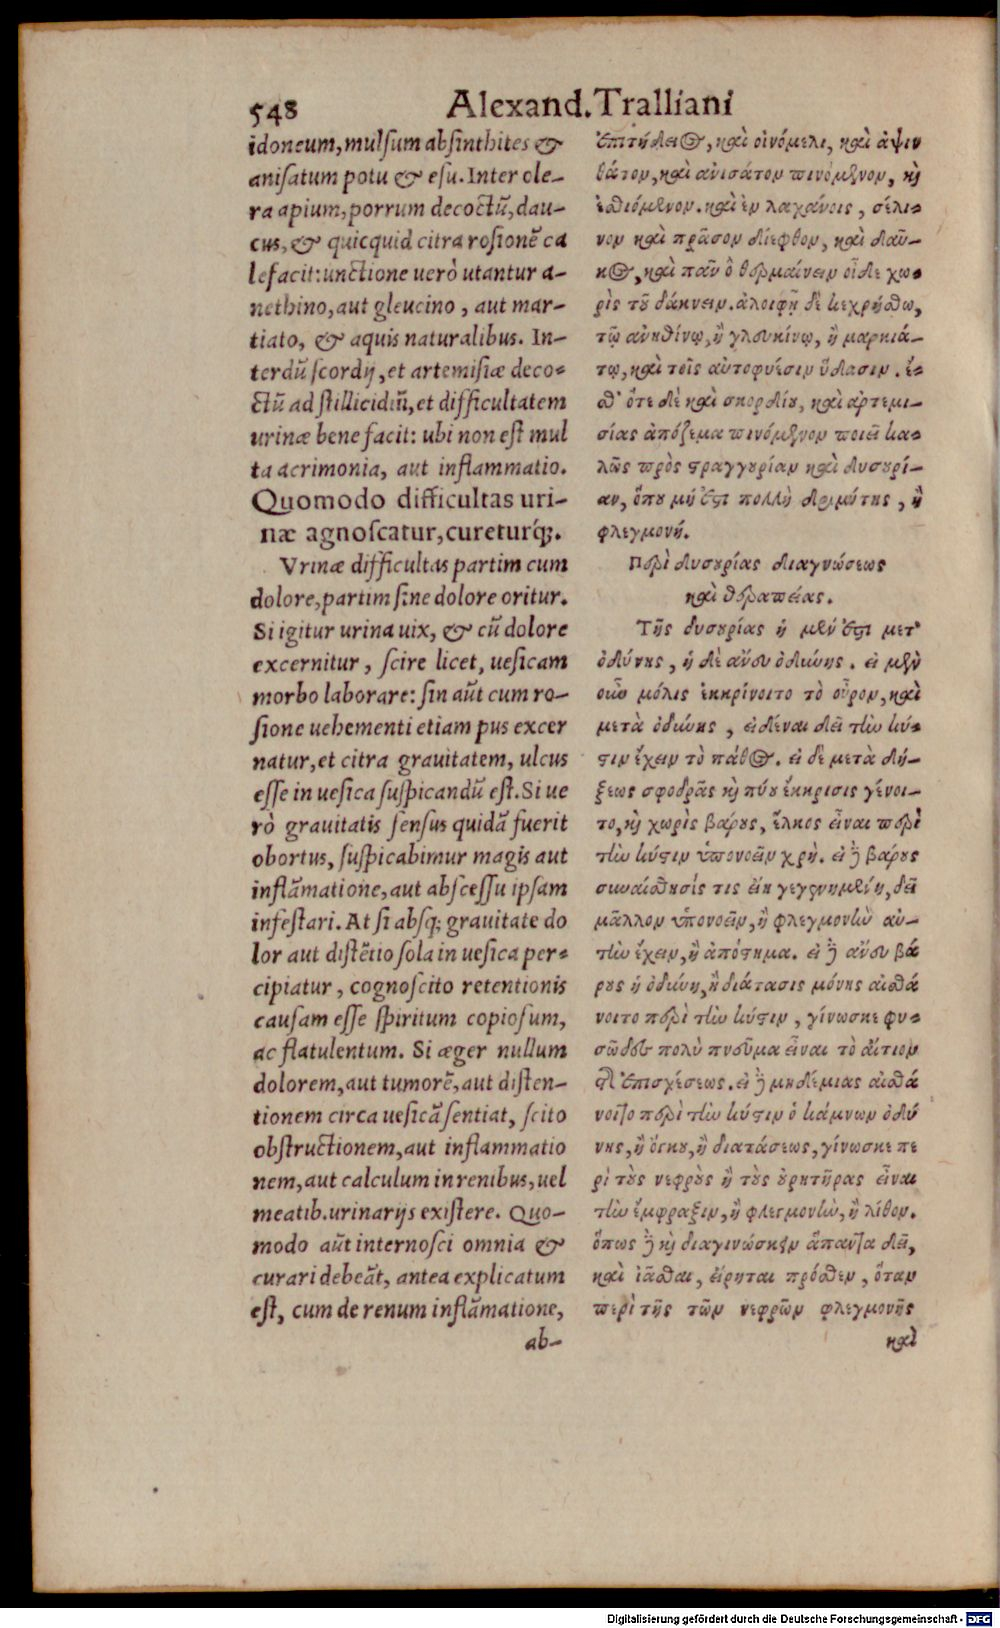 548 Alexand. Tralliani
idoneum, mulsum absinthites &
anisatum potu & esu. Inter ole-
ra apium, porrum decoctũ, dau-
cus, & quicquid citra rosionẽ ca
lefacit: unctione uerò utantur a-
nethino, aut gleucino, aut mar-
tiato, & aquis naturalibus. In-
terdũ scordij, et artemisiæ deco-
ctũ ad stillicidiũ, et difficultatem
urinæ bene facit: ubi non est mul
ta acrimonia, aut inflammatio.
Quomodo difficultas uri-
næ agnoscatur, cureturq́;.
Vrinæ difficultas partim cum
dolore, partim sine dolore oritur.
Si igitur urina uix, & cũ dolore
excernitur, scire licet, uesicam
morbo laborare: sin aũt cum ro-
sione uehementi etiam pus excer
natur, et citra grauitatem, ulcus
esse in uesica suspicandũ est. Si ue
rò grauitatis sensus quidã fuerit
obortus, suspicabimur magis aut
inflãmatione, aut abscessu ipsam
infestari. At si absq; grauitate do
lor aut distẽtio sola in uesica per-
cipiatur, cognoscito retentionis
causam esse spiritum copiosum,
ac flatulentum. Si æger nullum
dolorem, aut tumorẽ, aut disten-
tionem circa uesicã sentiat, scito
obstructionem, aut inflammatio
nem, aut calculum in renibus, uel
meatib. urinarijs existere. Quo-
modo aũt internosci omnia &
curari debeãt, antea explicatum
est, cum de renum inflãmatione,
ab-
ἐπιτήδειος, καὶ οἰνόμελι, καὶ ἀψιν
θάτον, καὶ ἀνισάτον πινόμενον, κὴ
ἐσθιόμενον. καὶ ἐν λαχάνοις, σέλι-
νον καὶ πρᾶσον δίεφθον, καὶ δαῦ-
κος, καὶ πᾶν ὃ θερμαίνειν οἶδε χω-
ρὶς τοῦ δάκνειν. ἀλοιφῇ δὲ κεχρήσθω,
τῷ ἀνηθίνῳ, ἢ γλευκίνῳ, ἢ μαρκιά-
τῳ, καὶ τοῖς αὐτοφυέσιν ὕδασιν. ἔ-
σθ' ὅτε δὲ καὶ σκορδίου, καὶ ἀρτεμι-
σίας ἀπόζεμα πινόμενον ποιεῖ κα-
λῶς πρὸς στραγγουρίαν καὶ δυσουρί-
αν, ὅπου μή ἐστι πολλὴ δριμύτης, ἢ
φλεγμονή.
Περὶ δυσουρίας διαγνώσεως
καὶ θεραπείας.
Τῆς δυσουρίας ἡ μέν ἐστι μετ'
ὀδύνης, ἡ δὲ ἄνευ ὀδύνης. εἰ μὲν
οὖν μόλις ἐκκρίνοιτο τὸ οὖρον, καὶ
μετὰ ὀδύνης, εἰδέναι δεῖ τὴν κύ-
στιν ἔχειν τὸ πάθος. εἰ δὲ μετὰ δή-
ξεως σφοδρᾶς κὴ πύου ἔκκρισις γένοι-
το, κὴ χωρὶς βάρους, ἕλκος εἶναι περὶ
τὴν κύστιν ὑπονοεῖν χρή. εἰ δὲ βάρους
συναίσθησίς τις εἴη γεγενημένη, δεῖ
μᾶλλον ὑπονοεῖν, ἢ φλεγμονὴν αὐ-
τὴν ἔχειν, ἢ ἀπόστημα. εἰ δὲ ἄνευ βά
ρους ἡ ὀδύνη, ἢ διάτασις μόνης αἰσθά
νοιτο περὶ τὴν κύστιν, γίνωσκε φυ-
σῶδες πολὺ πνεῦμα εἶναι τὸ αἴτιον
τῆς ἐπισχέσεως. εἰ δὲ μηδεμιᾶς αἰσθά
νοιτο περὶ τὴν κύστιν ὁ κάμνων ὀδύ
νης, ἢ ὄγκου, ἢ διατάσεως, γίνωσκε πε
ρὶ τοὺς νεφροὺς ἢ τοὺς οὐρητῆρας εἶναι
τὴν ἔμφραξιν, ἢ φλεγμονὴν, ἢ λίθον.
ὅπως δὲ κὴ διαγινώσκειν ἅπαντα δεῖ,
καὶ ἰᾶσθαι, εἴρηται πρόσθεν, ὅταν
περὶ τῆς τῶν νεφρῶν φλεγμονῆς
καὶ
Digitalisierung gefördert durch die Deutsche Forschungsgemeinschaft - DFG